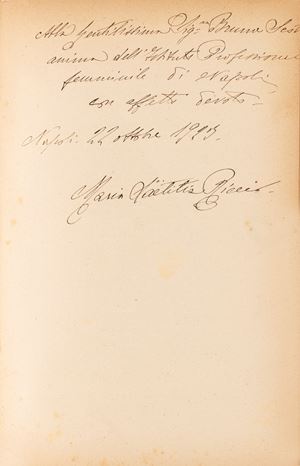 Alla gentilissima Sig.na Bruna
anima dell'Istituto Professionale
femminile di Napoli
con affetto devoto
Napoli 22 ottobre
Maria